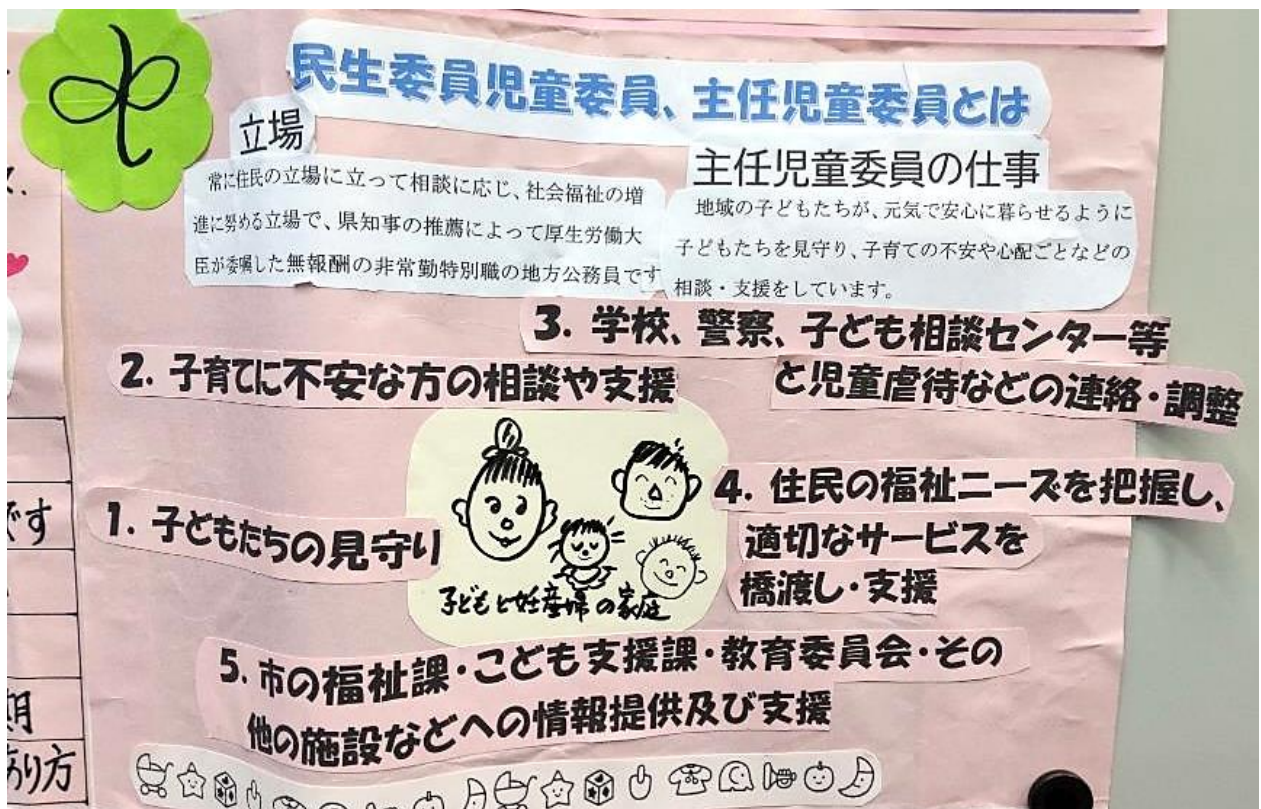 民生委員児童委員、主任児童委員とは
立場
常に住民の立場に立って相談に応じ、社会福祉の増
進に努める立場で、県知事の推薦によって厚生労働大
臣が委嘱した無報酬の非常勤特別職の地方公務員です
主任児童委員の仕事
地域の子どもたちが、元気で安心に暮らせるように
子どもたちを見守り、子育ての不安や心配ごとなどの
相談・支援をしています。
3. 学校、警察、子ども相談センター等
と児童虐待などの連絡・調整
2. 子育てに不安な方の相談や支援
1. 子どもたちの見守り
子どもと妊産婦の家庭
4. 住民の福祉ニーズを把握し、
適切なサービスを
橋渡し・支援
5. 市の福祉課・こども支援課・教育委員会・その
他の施設などへの情報提供及び支援
です
期
あり方